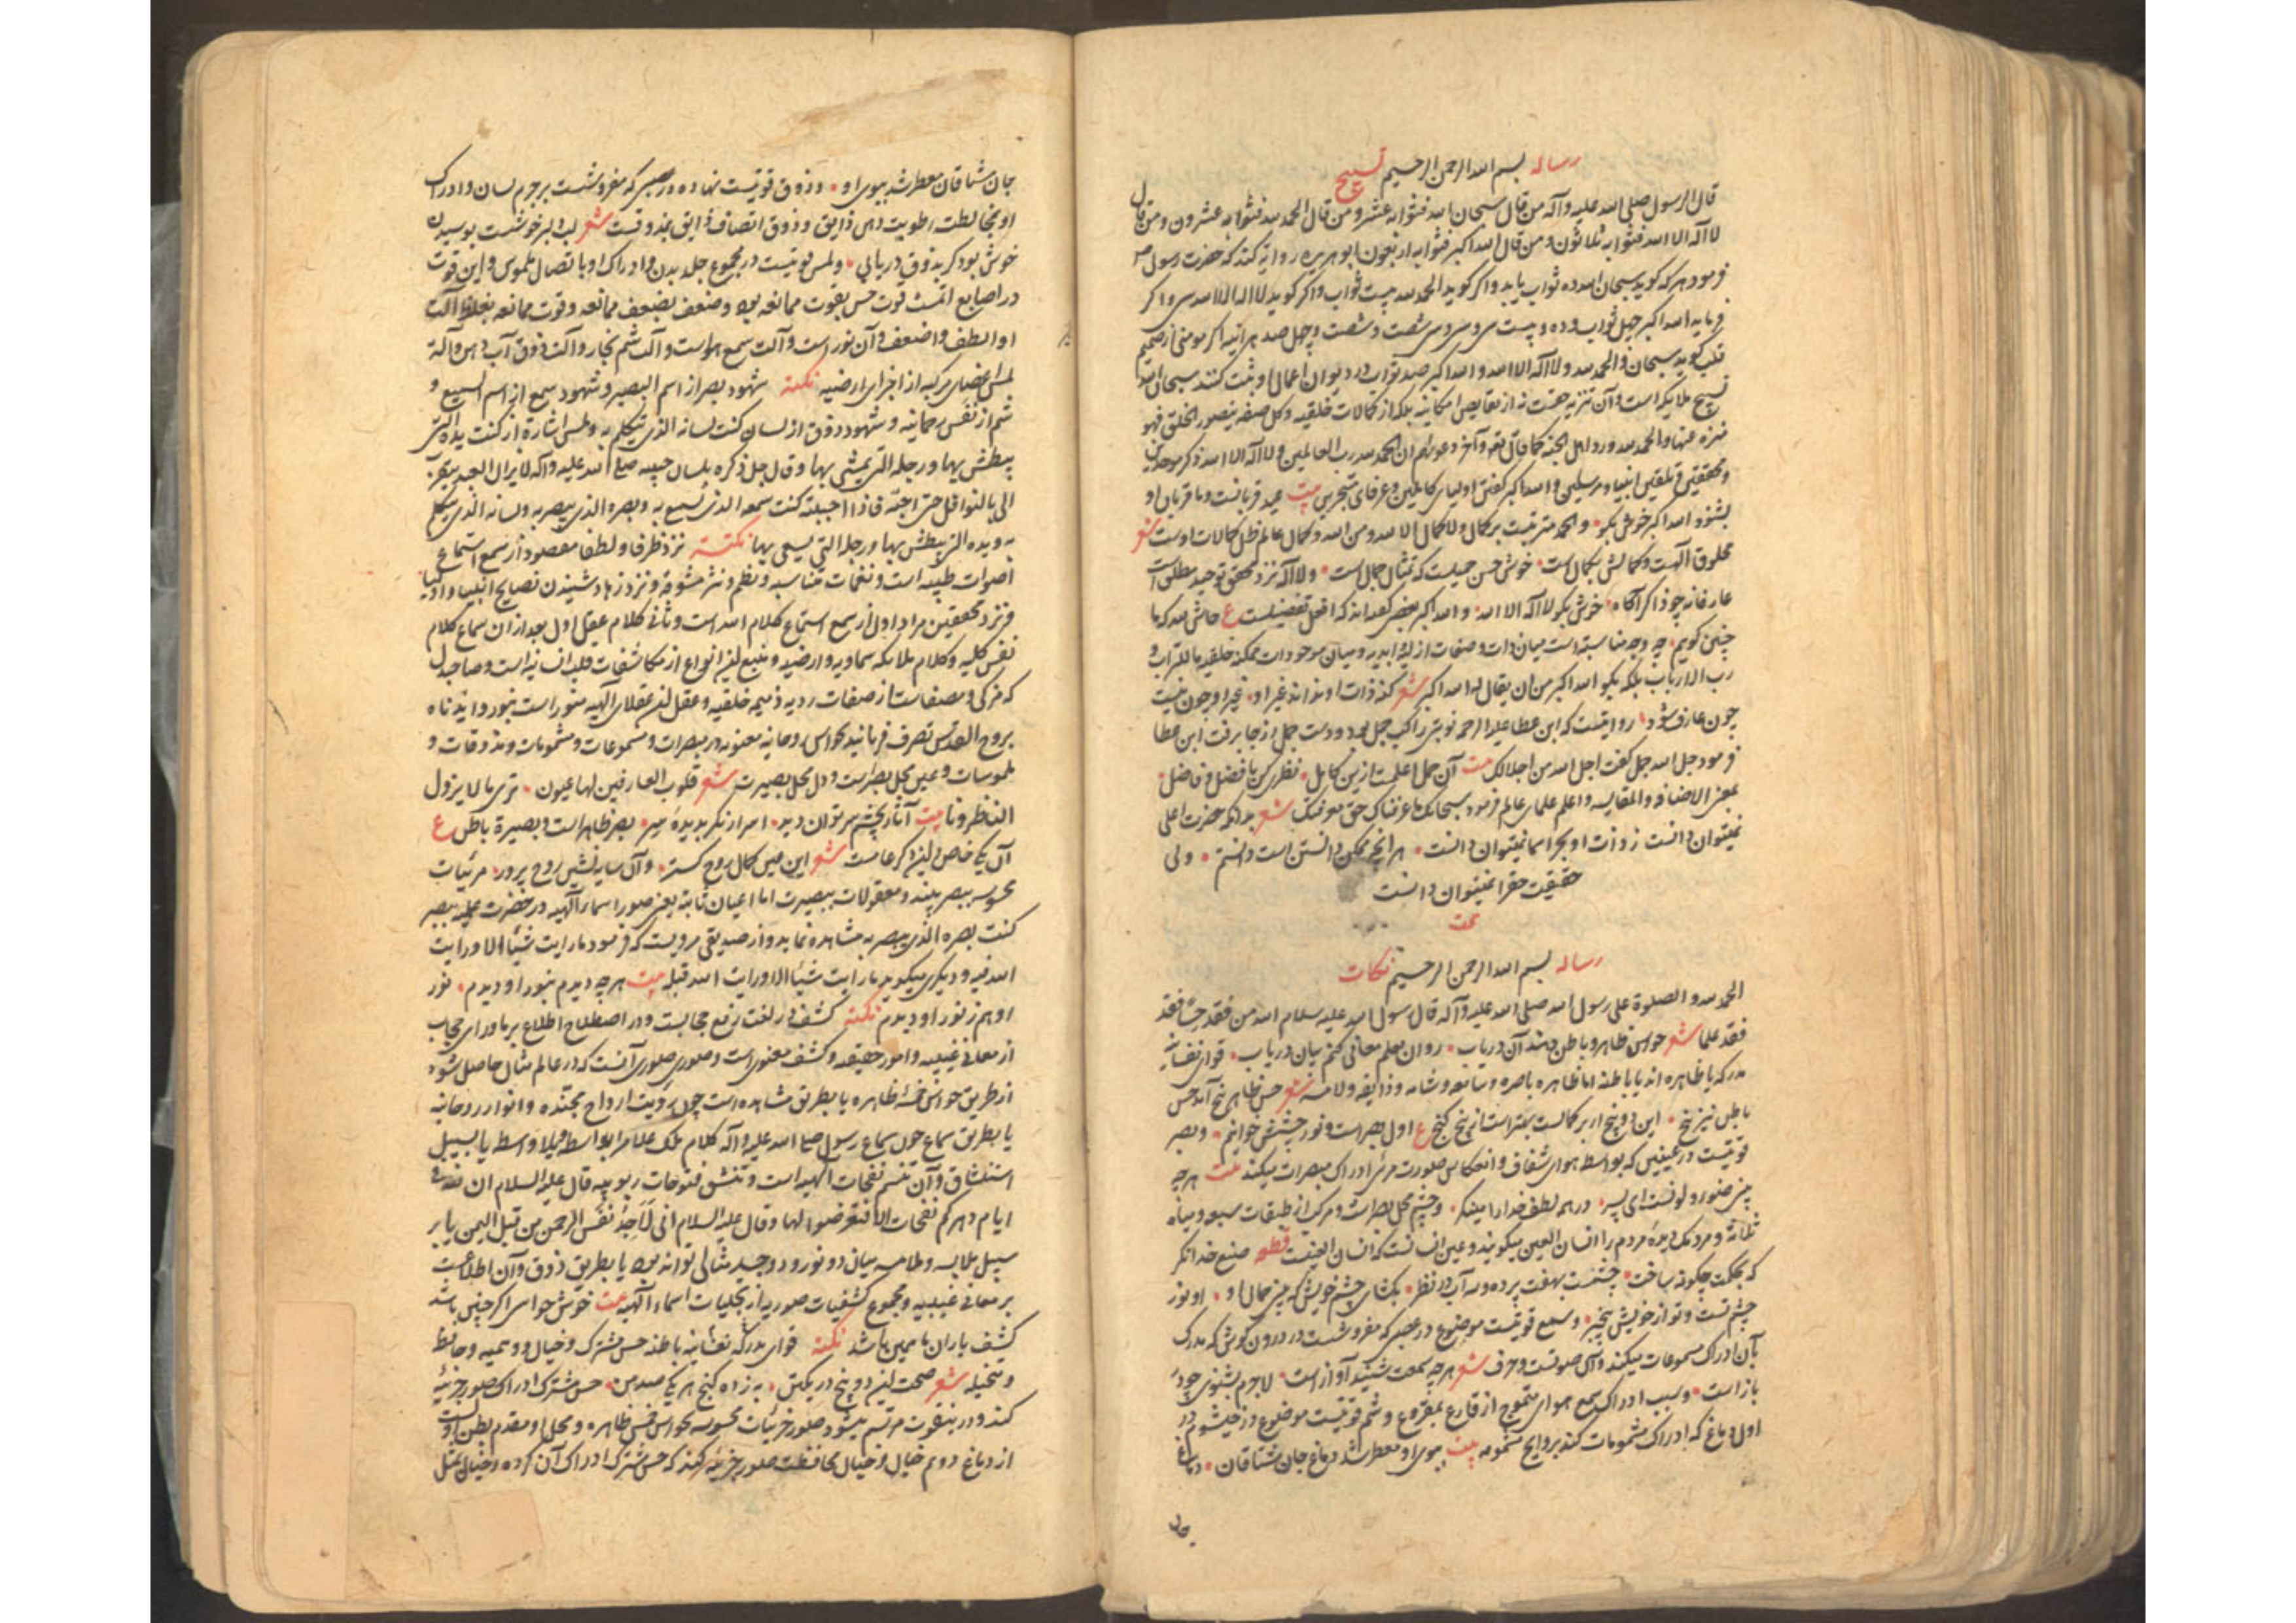 رساله بسم الله الرحمن الرحیم تسبیح
قال الرسول صلی الله علیه وآله من قال سبحان الله فثوابه عشر و من قال الحمد لله فثوابه عشرون و من قال
لا اله الا الله فثوابه ثلاثون و من قال الله اکبر فثوابه اربعون ابو هریره روایة کند که حضرت رسول
فرمود هر که کوید سبحان الله ده ثواب یابد و اکر کوید الحمد لله بیست ثواب و اکر کوید لا اله الا الله سی و اکر
فرماید الله اکبر چهل ثواب و ده و بیست سی و سی سی شصت و شصت و چهل صد هر آینه اکر مومنی از صمیم
قلب کوید سبحان والحمد لله ولا اله الا الله والله اکبر صد ثواب در دیوان اعمال او ثبت کنند سبحان الله
تسبیح ملایکه است و آن تنزیه حقست نه از نقایص امکانیه بلکه از کمالات خلقیه و کل صفة یتصور الخلق فهو
منزه عنها والحمد لله ورد اهل الجنة کما قال تعالی وآخر دعویهم ان الحمد لله رب العالمین ولا اله الا الله ذکر موحدین
و محققین و تلقین انبیاء و مرسلین و الله اکبر کفتن اولیای کاملین و عرفای متبحرین بیت عید قربانست و ما قربان او
بشنو الله اکبر خوش بکو والحمد مترتبست بر کمال ولا کمال الا لله ومن الله و کمال عالم ظل کمالات اوست شعر
مخلوق آلهست و کمالش بکمال است خوش حسن جمیلست که تمثال جمال است ولا اله نزد محقق توحید مطلق است
عارفانه چو ذاکر آکاه خوش بکو لا اله الا الله والله اکبر بعضی کفته اند که افعل تفضیلست ع حاش لله که ما
چنین کویم چه وجه مناسبتست میان ذات و صفات ازلیه ابدیه و میان موجودات ممکنه خلقیه ما للتراب و
رب الارباب بلکه بکو الله اکبر من ان یقال له الله اکبر شعر کنه ذات او نداند غیر او غیر او چون نیست
چون عارف شود روایتست که ابن عطا علیه الرحمه نوبتی راکب جمل بود و دست جمل از جا برفت ابن عطا
فرمود جل الله جمل کفت اجل الله من اجلالک بیت آن جمل اعلمست ازین کامل نظری کن بافضل و فاضل
بمعنی الاضافه والمقایسه و اعلم علمای عالم فرمود سبحانک ما عرفناک حق معرفتک شعر بدانکه حضرت اعلی
نمیتوان دانست ز ذات او بجز اسما نمیتوان دانست هر آنچه ممکن دانستن است دانستم ولی
حقیقت حق را نمیتوان دانست
تمت
رساله بسم الله الرحمن الرحیم نکات
الحمد لله والصلوة علی رسول الله صلی الله علیه وآله قال رسول الله علیه سلام الله من فقد حسا فقد
فقد علما شعر حواس ظاهر و باطن آن دریاب روان معلم معانی کنم بیان دریاب قوای نفسانیه
مدرکه یا ظاهره اند یا باطنه اما ظاهره باصره و سامعه و شامه و ذایقه و لامسه شعر حس ظاهر پنج آمد حس
باطن نیز پنج این دو پنج ار بر کمالست بهتر است از پنج کنج ع اول بصر است و نور چشمش خوانیم و بصر
قوتیست در عینین که بواسطه هوای شفاف و انعکاس صورت مرئی ادراک مبصرات میکند بیت هر چه
بینی صنوبر و لونست ای پسر در همه لطف خدا را مینکر و چشم محل بصر است و مرکب از طبقات سبعه و میاه
ثلاثه و مردمک دیده مردم را انسان العین میکویند و عین انسانست که انسان العینست قطعه صنع خدا نکر
که بحکمت چکونه ساخت چشمت بهفت پرده و سه آب در نظر بکشای چشم خویش که بینی جمال او او نور
چشم تست و تو از خویش بیخبر و سمع قوتیست موضوع در عصبی که مفروشست در درون کوش که مدرک
بآن ادراک مسموعات میکند و آن صوتست و حرف شعر هر چه سمعت شنید آواز است لاجرم بشنوی چو در
باز است و سبب ادراک سمع هوای متموج از قارع بمقروع و شم قوتیست موضوع در خیشوم در
اول دماغ که ادراک مشمومات کند بروایح مشمومه بیت ببوی او معطر شد دماغ جان مشتاقان دماغ
جان
جان مشتاقان معطر شد ببوی او و ذوق قوتیست نهاده در عصبی که مفروشست بر جرم لسان و ادراک
او بمخالطت رطوبت دهن ذایق و ذوق اتصاف ذایق بمذوقست شعر لب دلبر خوشست بوسیدن
خوش بود کر بذوق دریابی و لمس قوتیست در مجموع جلد بدن و ادراک او باتصال ملموس و این قوت
در اصابع اتمست قوت حس بقوت ممانعه بود و ضعف بضعف ممانعه و قوت ممانعه بغلظ آلت
او الطف و اضعف و آن نور است و آلت سمع هواست و آلت شم بخار و آلت ذوق آب دهن و آلة
لمس اعضای مرکبه از اجزای ارضیه نکته شهود بصر از اسم البصیر و شهود سمع از اسم السمیع و
شم از نفس رحمانیه و شهود ذوق از لسان کنت لسانه الذی یتکلم به و لمس اشارة از کنت یده التی
یبطش بها و رجله التی یمشی بها و قال جل ذکره بلسان حبیبه صلی الله علیه وآله لا یزال العبد یتقرب
الی بالنوافل حتی احبه فاذا احببته کنت سمعه الذی یسمع به و بصره الذی یبصر به و لسانه الذی یتکلم
به و یده التی یبطش بها و رجله التی یسعی بها نکتة نزد ظرفا و لطفا مقصود از سمع استماع
اصوات طیبه است و نغمات متناسبه و نظم و نثر مشوقه و نزد زهاد شنیدن نصایح انبیا و اولیا
و نزد محققین مراد اول از سمع استماع کلام الله است و ثانی کلام عقل اول بعد از آن سماع کلام
نفس کلیه و کلام ملایکه سماویه و ارضیه و منبع این انواع از مکاشفات قلب انسانیه است و صاحبدل
که مزکی و مصفاست از صفات ردیه ذمیمه خلقیه و عقل این عقلای الهیه منور است بنور و ایدناه
بروح القدس تصرف فرمانید بحواس روحانیه معنویه در مبصرات و مسموعات و مشمومات و مذوقات و
ملموسات و عین محل بصر است و دل محل بصیرت شعر قلوب العارفین لها عیون تری ما لا یزول
الناظرونا بیت آثار بچشم سر توان دید اسرار نکر بدیده سر بصر ظاهر است و بصیرة باطن ع
آن یکی خاص و این دکر عامست شعر این میان کمال روح کستر و آن سایه نشین روح پرور مرئیات
محسوسه ببصر بیند و معقولات ببصیرت اما اعیان ثابته یعنی صور اسماء الهیه در حضرت علمیه ببصر
کنت بصره الذی یبصر به مشاهده نماید و از صدیقی مرویست که فرمود ما رایت شیئا الا و رایت
الله فیه و دیکری میکوید ما رایت شیئا الا و رایت الله قبله بیت هر چه دیدم بنور او دیدم نور
او هم ز نور او دیدم نکته کشف در لغت رفع حجابست و در اصطلاح اطلاع بر ماورای حجاب
از معانی غیبیه و امور حقیقه و کشف معنوی است و صوری صوری آنست که در عالم مثال حاصل شود
از طریق حواس خمسه ظاهره یا بطریق مشاهده است چون رؤیت ارواح متجسده و انوار روحانیه
یا بطریق سماع چون سماع رسول صلی الله علیه وآله کلام ملک علام را بواسطه و بلا واسطه یا بسبیل
استنشاق و آن تنسم نفحات الهیه است و تنشق فتوحات ربوبیه قال علیه السلام ان لله فی
ایام دهرکم نفحات الا فتعرضوا لها و قال علیه السلام انی لاجد نفس الرحمن من قبل الیمن یا بر
سبیل ملابسه و ملامسه میان دو نور و دو جسد مثالی تواند بود یا بطریق ذوق و آن اطلاعست
بر معانی غیبیه و مجموع کشفیات صوریه از تجلیات اسماء الهیه بیت خوش حواسی اکر چنین باشد
کشف یاران ما همین باشد نکته قوای مدرکه نفسانیه باطنه حس مشترک و خیال و وهمیه و حافظه
و متخیله شعر صحت این دو پنج در یکتن به ز ده کنج هر یکی صد من حس مشترک ادراک صور جزئیه
کند و در بنقوت مرتسم میشود صور جزئیات محسوسه بحواس خمس ظاهره و محل او مقدم بطن اولست
از دماغ دوم خیال و خیال محافظت صور جزئیه کند که حس مشترک ادراک آن کرده و خیال بمثل